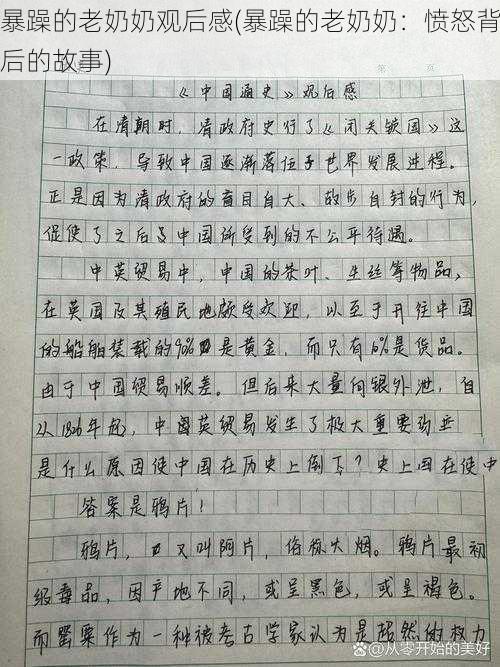 暴躁的老奶奶观后感(暴躁的老奶奶：愤怒背
后的故事)
《中国通史》观后感
在清朝时，清政府史行了《闭关锁国》这
一政策，导致中国逐渐落伍于世界发展进程。
正是因为清政府的盲目自大、故步自封的行为，
促使了之后及中国所受到的不公平待遇。
中英贸易中，中国的茶叶、生丝等物品，
在英国及其殖民地颇受欢迎，以至于开往中国
的船舶装载的90%是黄金，而只有10%是货品。
由于中国贸易顺差。但后来大量向银外泄，自
从1826年起，中英贸易发生了极大重要
是什么原因使中国在历史上倒下？史上国在使中
答案是鸦片！
鸦片，又叫阿片，俗称大烟。鸦片最初
级毒品，因产地不同，或呈黑色，或呈褐色。
而罂粟作为一种被考古学家认为是超然的权力
@从零开始的美好